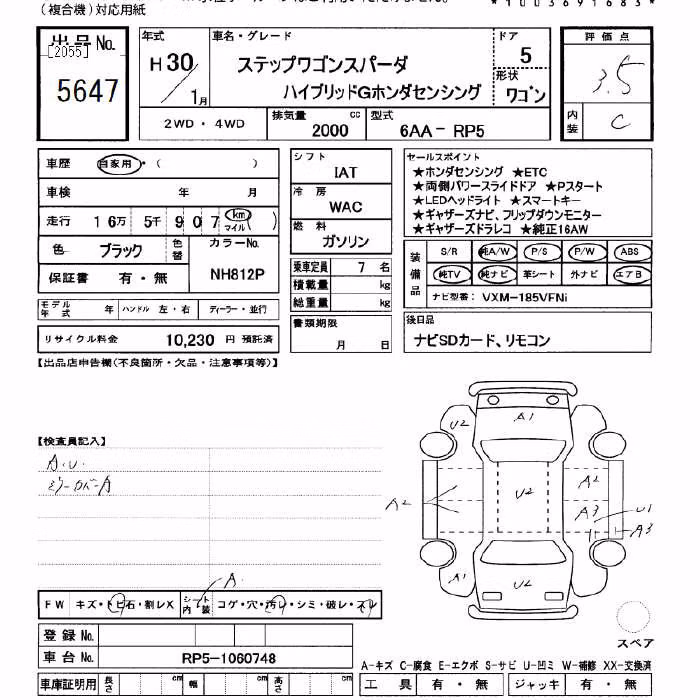 (複合機)対応用紙
*1003691683*
出品No.
[2055]
5647
年式
H30/1月
車名・グレード
ステップワゴンスパーダ
ハイブリッドGホンダセンシング
ドア
5
形状
ワゴン
評価点
3.5
内装
C
2WD・4WD
排気量
2000 cc
型式
6AA-RP5
車歴
自家用・( )
車検 年 月
走行 16万5千907(km マイル)
色 ブラック
色替
カラーNo.
NH812P
保証書 有・無
モデル年式 年
ハンドル 左・右
ディーラー・並行
リサイクル料金 10,230 円 預託済
シフト
IAT
冷房
WAC
燃料
ガソリン
乗車定員 7 名
積載量 kg
総重量 kg
書類期限
月 日
セールスポイント
★ホンダセンシング ★ETC
★両側パワースライドドア ★Pスタート
★LEDヘッドライト ★スマートキー
★ギャザーズナビ、フリップダウンモニター
★ギャザーズドラレコ ★純正16AW
装備品
S/R 純A/W P/S P/W ABS
純TV 純ナビ 革シート 外ナビ エアB
ナビ型番: VXM-185VFNi
後日品
ナビSDカード、リモコン
【出品店申告欄(不良箇所・欠品・注意事項等)】
【検査員記入】
A.U.
ミラーカバーA
A1
U2
U2
A2
A2
A3
U1
A3
A1
U2
A.
FW キズ・トビ石・割レX
シート内装
コゲ・穴・汚レ・シミ・破レ・スレ
登録No.
車台No. RP5-1060748
車庫証明用 長さ cm 幅 cm 高さ cm
スペア
A-キズ C-腐食 E-エクボ S-サビ U-凹ミ W-補修 XX-交換済
工具 有・無 ジャッキ 有・無